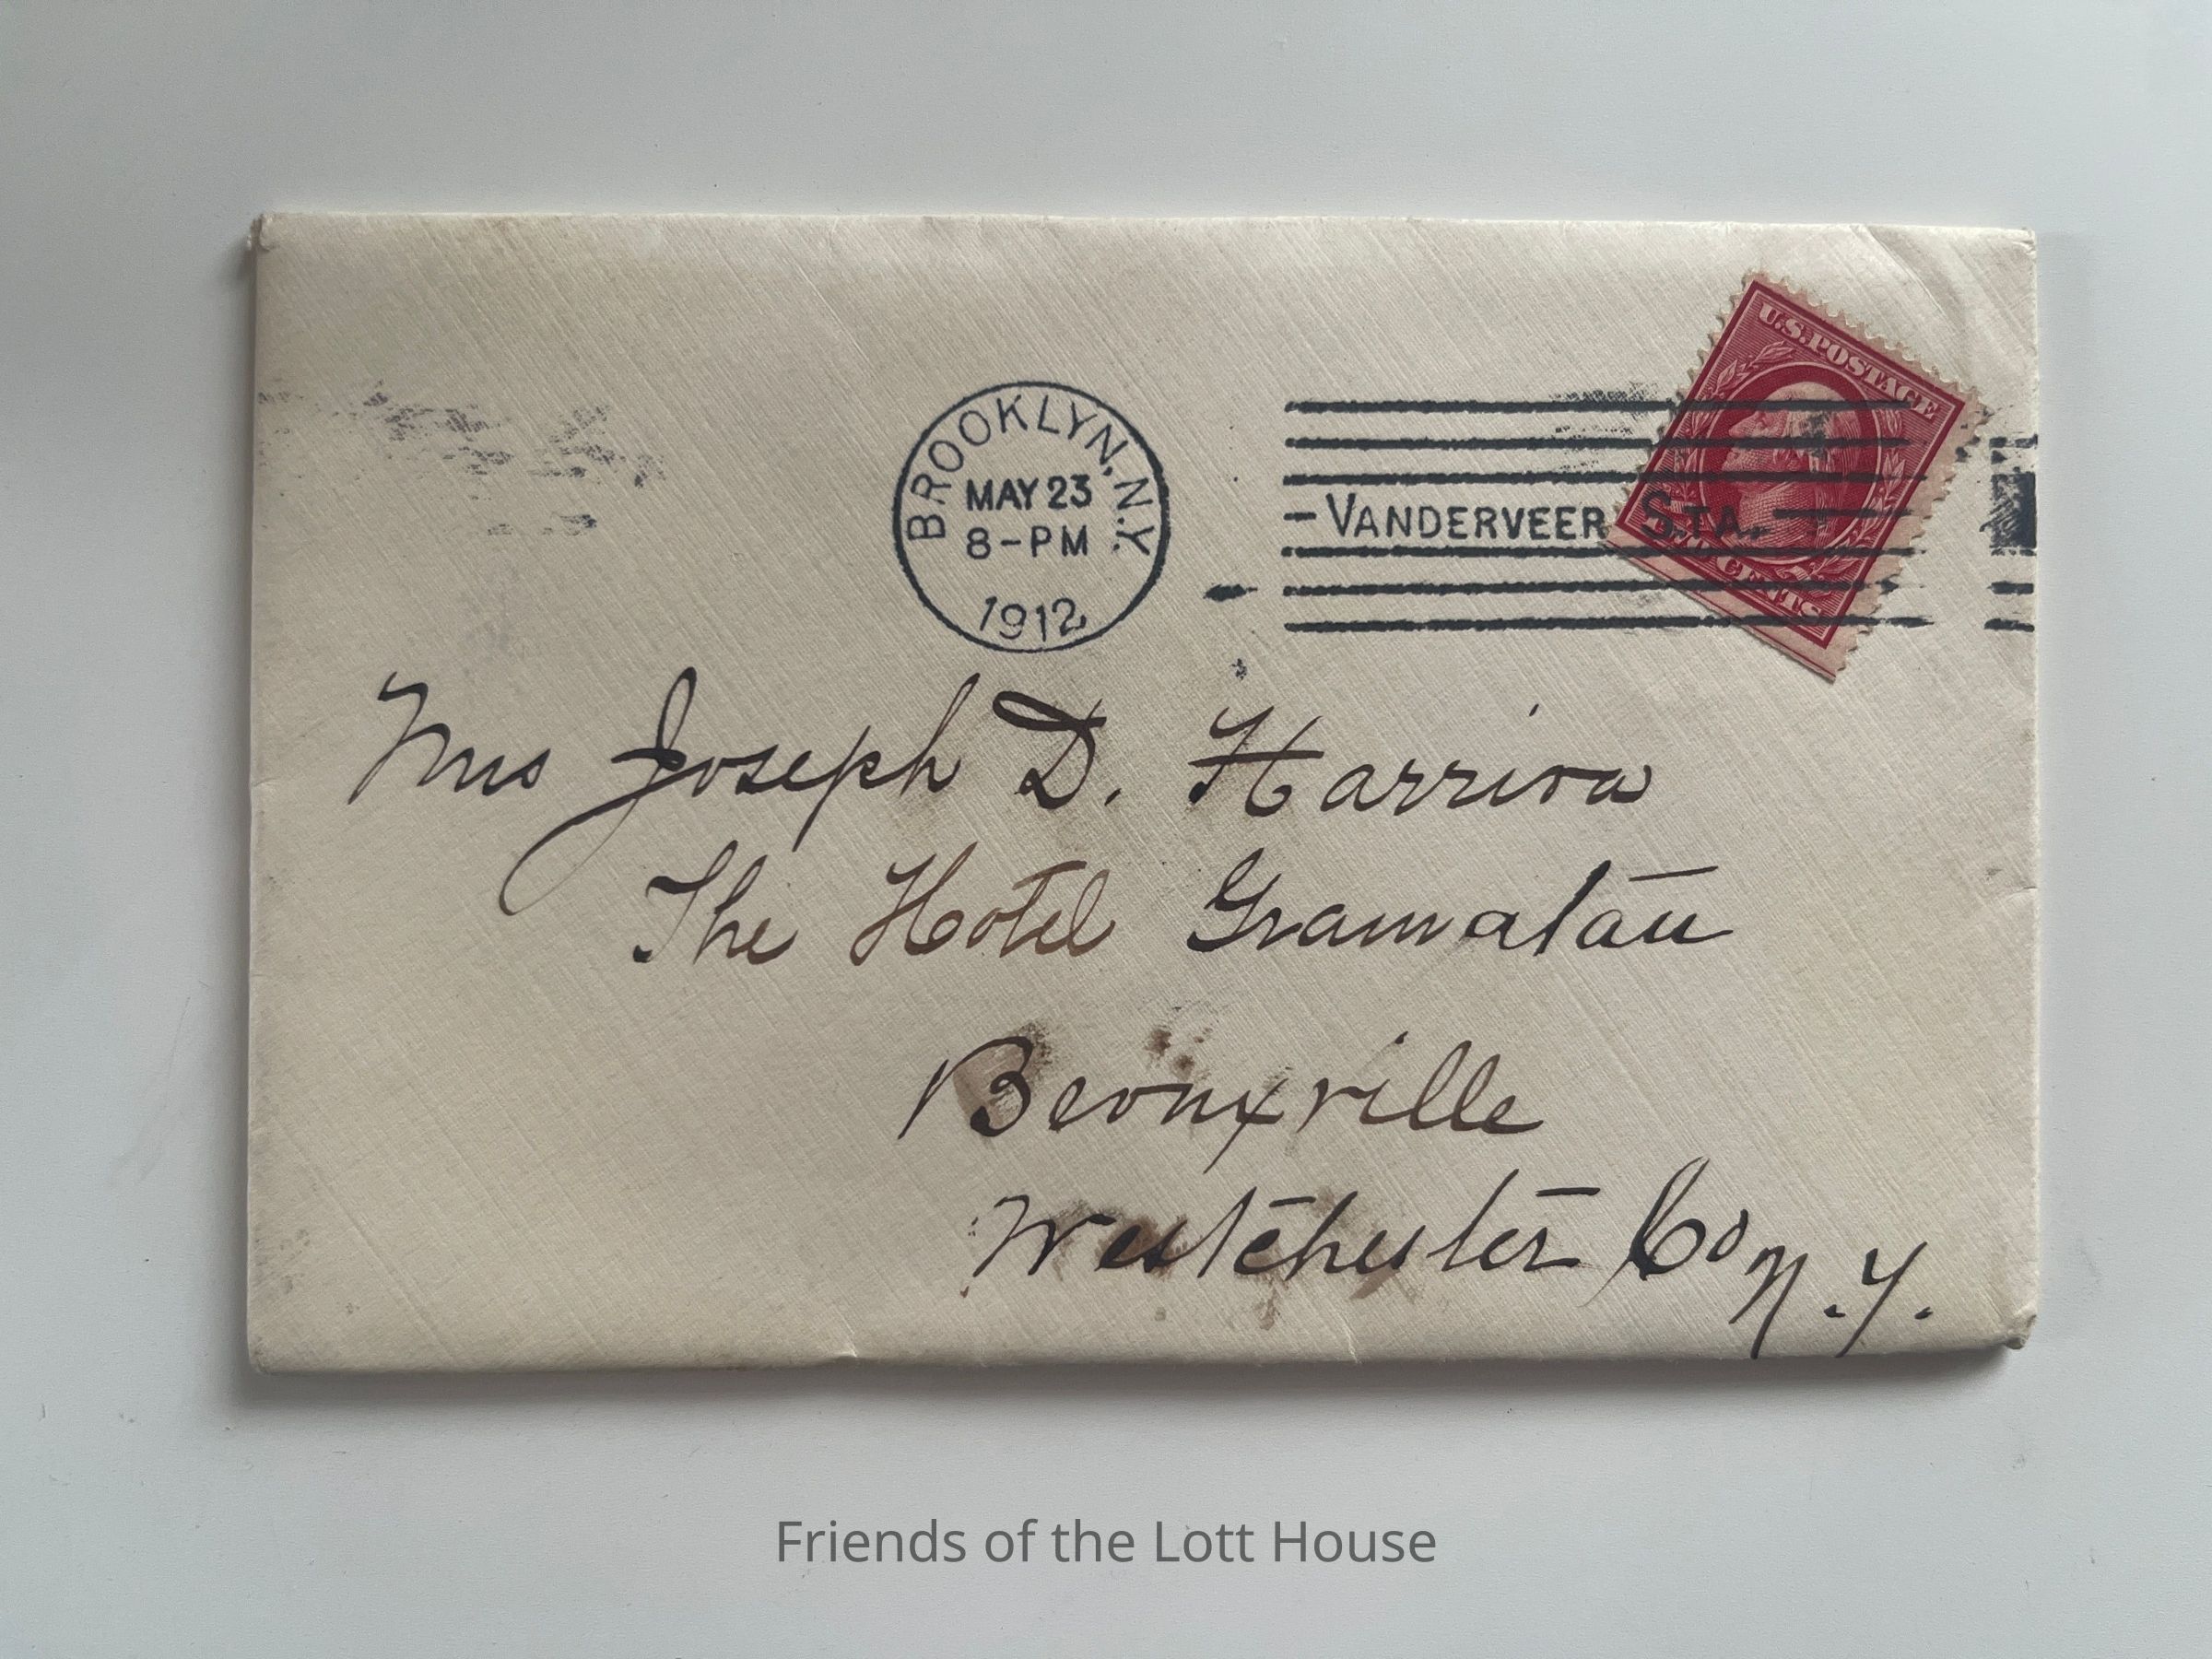 U.S. POSTAGE
BROOKLYN, N.Y.
MAY 23
8-PM
1912
VANDERVEER STA.
TWO CENTS
Mrs Joseph D. Harrison
The Hotel Gramatan
Bronxville
Westchester Co N.Y.
Friends of the Lott House